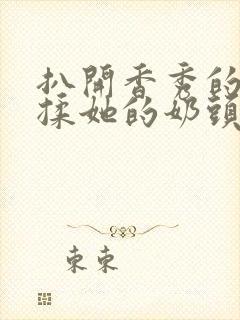 扒開香秀的
揉她的奶頭
束束